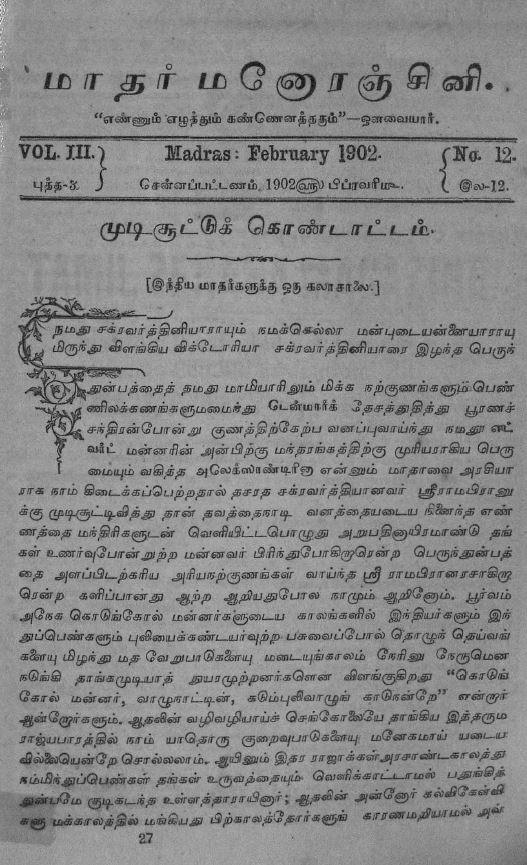 மாதர் மனோரஞ்சினி.
“எண்ணும் எழுத்தும் கண்ணெனத்தகும்”—ஔவையார்.
VOL. III. Madras: February 1902. No. 12.
புத்த-௩ சென்னப்பட்டணம், 1902௵ பிப்ரவரி௴. இல-12.
முடிசூட்டுக் கொண்டாட்டம்.
[இந்திய மாதர்களுக்கு ஒரு கலாசாலை.]
நமது சக்ரவர்த்தினியாராயும் நமக்கெல்லா மன்புடையன்னையாராயு
மிருந்து விளங்கிய விக்டோரியா சக்ரவர்த்தினியாரை இழந்த பெருந்
துன்பத்தைத் தமது மாமியாரினும் மிக்க நற்குணங்களும் பெண்
ணிலக்கணங்களுமமைந்து டேன்மார்க் தேசத்துதித்து பூரணச்
சந்திரன்போன்று குணத்திற்கேற்ப வனப்புவாய்ந்து நமது எட்
வர்ட் மன்னரின் அன்பிற்கு மந்தரங்கத்திற்கு முரியராகிய பெரு
மையும் வகித்த அலெக்ஸாண்டிரீனா என்னும் மாதாவை அரசியா
ராக நாம் கிடைக்கப்பெற்றதால் தசரத சக்ரவர்த்தியானவர் ஸ்ரீராமபிரானு
க்கு முடிசூட்டிவித்து தான் தவத்தைநாடி வனத்தையடைய நினைந்த எண்
ணத்தை மந்திரிகளுடன் வெளியிட்டபொழுது அறுபதினாயிரமாண்டு தங்
கள் உணர்வுபோன்றுற்ற மன்னவர் பிரிந்துபோகிறாரென்ற பெருந்துன்பத்
தை அளப்பிடற்கரிய அரியநற்குணங்கள் வாய்ந்த ஸ்ரீ ராமபிரானரசாகிறா
ரென்ற களிப்பான்து ஆற்ற ஆறியதுபோல நாமும் ஆறினோம். பூர்வம்
அநேக கொடுங்கோல் மன்னர்களுடைய காலங்களில் இந்தியர்களும் இந்
துப்பெண்களும் புலியைக்கண்டயர்வுற்ற பசுவைப்போல் தொழுந் தெய்வங்
களையு மிழந்து மத வேறுபாடுகளையு மடையுங்காலம் நேரினு நேருமென
நடுங்கி தாங்கமுடியாத் துயரமுற்றனர்களென விளங்குகிறது “கொடுங்
கோல் மன்னர், வாழுநாட்டின், கடும்புலிவாழுங் காடுநன்றே” என்றார்
ஆன்றோர்களும். ஆதலின் வழிவழியாய்ச் செங்கோலையே தாங்கிய இத்தரும
ராஜ்யபாரத்தில் நாம் யாதொரு குறைவுபாடுகளையு மனேகமாய் யடைய
வில்லையென்றே சொல்லலாம். ஆயினும் இதர ராஜாக்கள்அரசாண்டகாலத்து
நம்மிந்துப்பெண்கள் தங்கள் உருவத்தையும் வெளிக்காட்டாமல் பதுங்கித்
துன்பமே குடிகடந்த உள்ளத்தாராயினார்; ஆதலின் அன்னோர் கல்விகேள்வி
களு மக்காலத்தில் மங்கியது பிற்காலத்தோர்களுங் காரணமறியாமல் அவ்
27